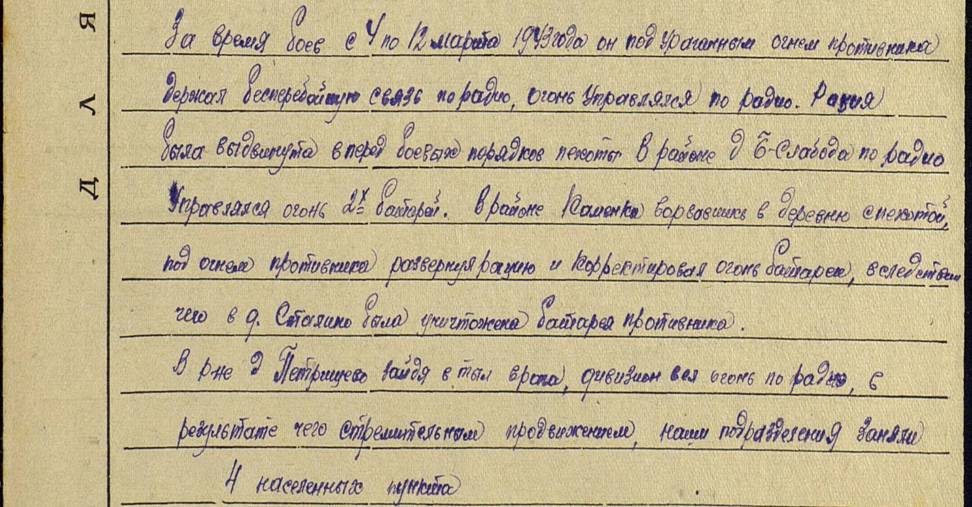 За время боев с 4 по 12 марта 1943 года он под ураганным огнем противника
держал бесперебойную связь по радио, огонь управлялся по радио. Рация
была выдвинута вперед боевых порядков пехоты В районе д Б-Слабода по радио
Управлялся огонь 2х батарей. В районе Каменка ворвавшись в деревню с пехотой,
под огнем противника развернул рацию и корректировал огонь батареи, вследствии
чего в д. Сталино была уничтожена батарея противника.
В р-не д Петрищево зайдя в тыл врага, дивизион вел огонь по радио, в
результате чего стремительным продвижением, наши подразделения заняли
4 населенных пункта
ДЛЯ